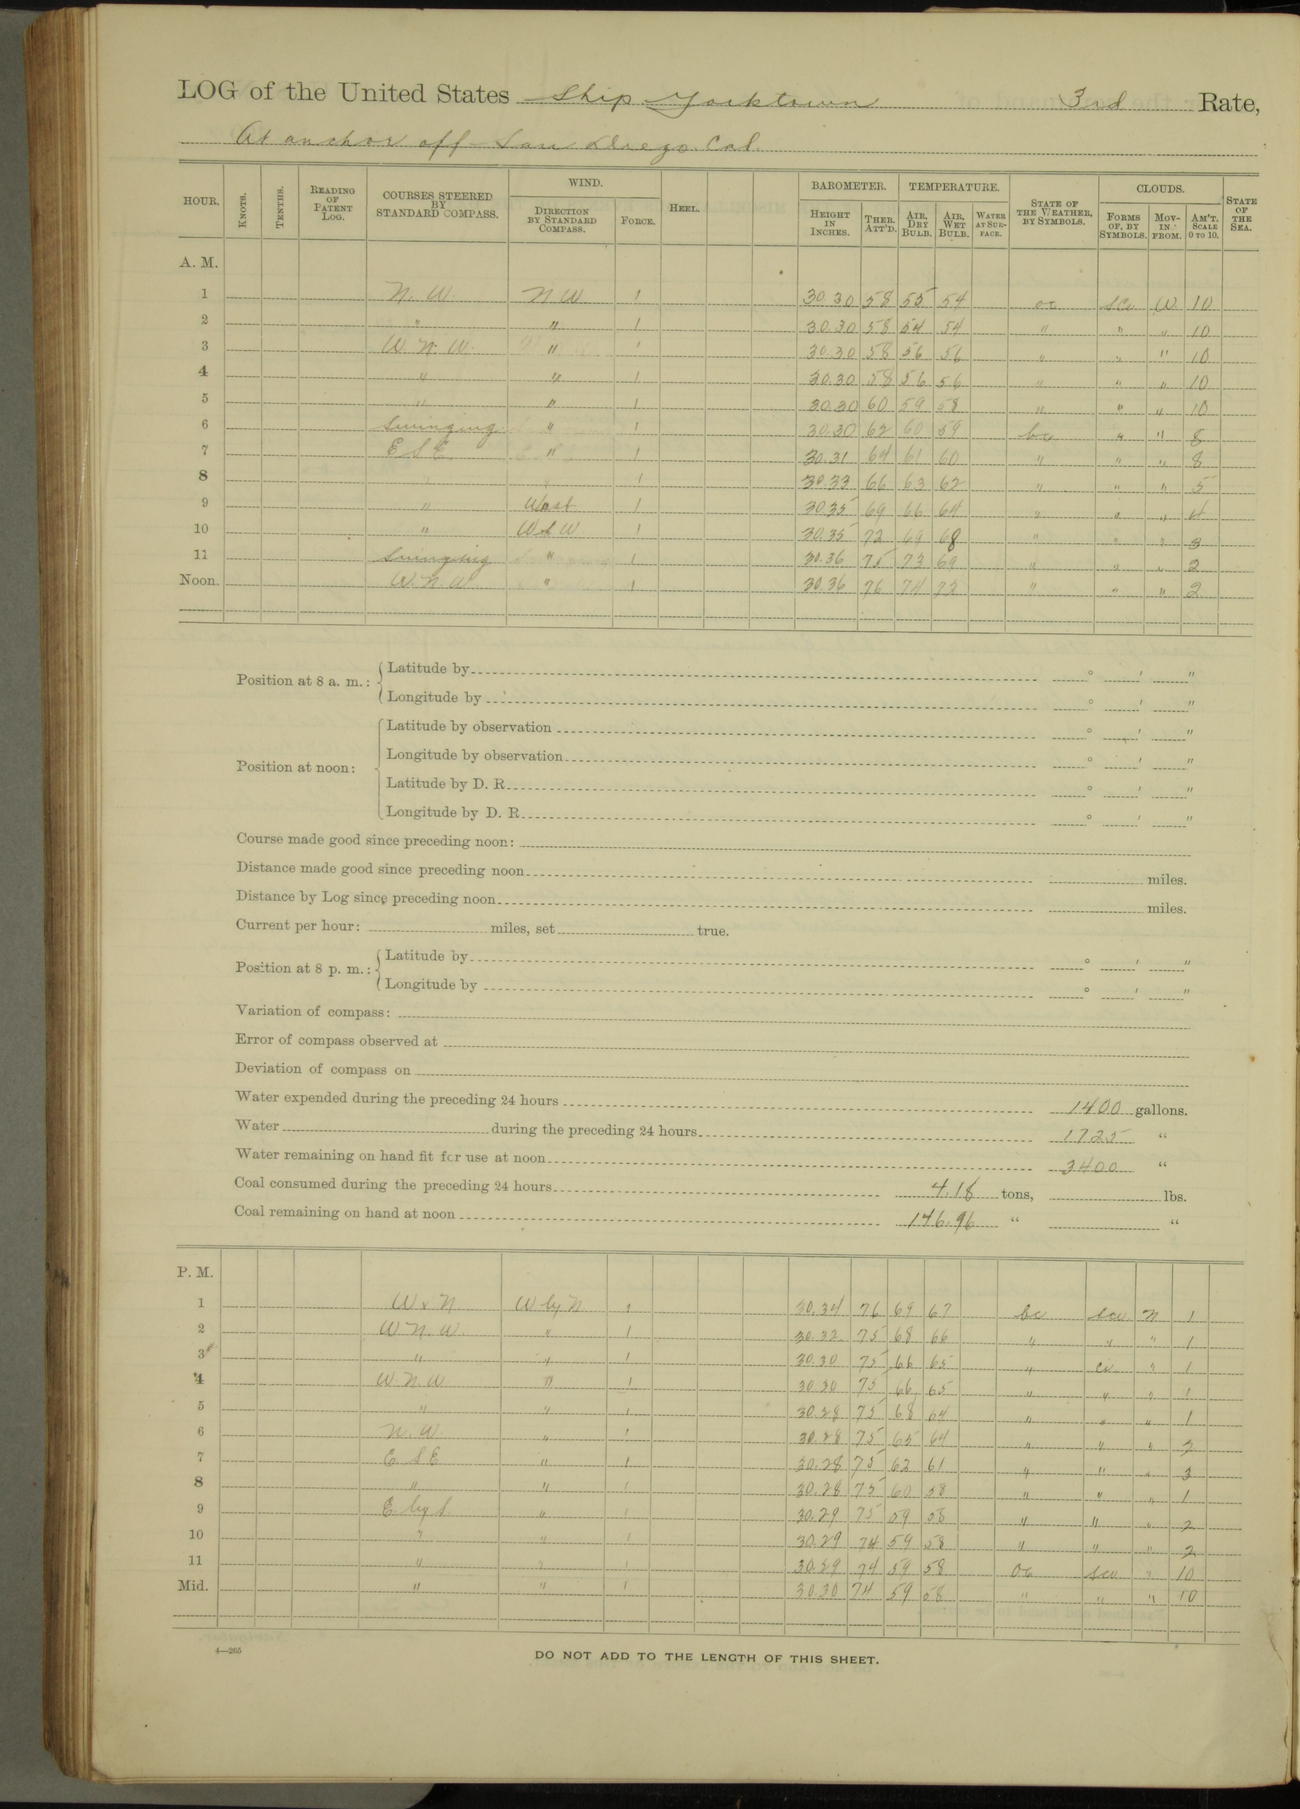 LOG of the United States Ship Yorktown 3rd Rate,
At anchor off San Diego. Cal.
HOUR. KNOTS. TENTHS. READING OF PATENT LOG. COURSES STEERED BY STANDARD COMPASS. WIND. DIRECTION BY STANDARD COMPASS. FORCE. HEEL. BAROMETER. HEIGHT IN INCHES. THER. ATT'D. TEMPERATURE. AIR, DRY BULB. AIR, WET BULB. WATER AT SURFACE. STATE OF THE WEATHER, BY SYMBOLS. CLOUDS. FORMS OF, BY SYMBOLS. MOVIN' FROM. AM'T. SCALE 0 TO 10. STATE OF THE SEA.
A. M.
1 N. W. N W 1 30.30 58 55 54 oc scu W 10
2 " " 1 30.30 58 54 54 " " " 10
3 W. N. W. " 1 30.30 58 56 56 " " " 10
4 " " 1 30.30 58 56 56 " " " 10
5 " " 1 30.30 60 59 58 " " " 10
6 Swinging " 1 30.30 62 60 59 bc " " 8
7 E S E. " 1 30.31 64 61 60 " " " 8
8 " " 1 30.33 66 63 62 " " " 5
9 " West 1 30.35 69 66 64 " " " 4
10 " W S W 1 30.35 72 69 68 " " " 3
11 Swinging " 1 30.36 75 73 69 " " " 2
Noon. W. N. W. " 1 30.36 76 74 72 " " " 2
Position at 8 a. m.: Latitude by ° ' "
Longitude by ° ' "
Position at noon: Latitude by observation ° ' "
Longitude by observation ° ' "
Latitude by D. R. ° ' "
Longitude by D. R. ° ' "
Course made good since preceding noon:
Distance made good since preceding noon miles.
Distance by Log since preceding noon miles.
Current per hour: miles, set true.
Position at 8 p. m.: Latitude by ° ' "
Longitude by ° ' "
Variation of compass:
Error of compass observed at
Deviation of compass on
Water expended during the preceding 24 hours 1400 gallons.
Water during the preceding 24 hours 1725 "
Water remaining on hand fit for use at noon 3400 "
Coal consumed during the preceding 24 hours 4.18 tons, lbs.
Coal remaining on hand at noon 146.96 " "
P. M.
1 W x N W by N 1 30.34 76 69 67 bc scu N 1
2 W N. W. " 1 30.32 75 68 66 " " " 1
3 " " 1 30.30 75 66 65 " ci " 1
4 W. N. W " 1 30.30 75 66 65 " " " 1
5 " " 1 30.28 75 68 64 " " " 1
6 N. W. " 1 30.28 75 65 64 " " " 2
7 E S E " 1 30.28 75 62 61 " " " 3
8 " " 1 30.28 75 60 58 " " " 1
9 E. by S. " 1 30.29 75 59 58 " " " 2
10 " " 1 30.29 74 59 58 " " " 2
11 " " 1 30.29 74 59 58 oc scu " 10
Mid. " " 1 30.30 74 59 58 " " " 10
4—265
DO NOT ADD TO THE LENGTH OF THIS SHEET.